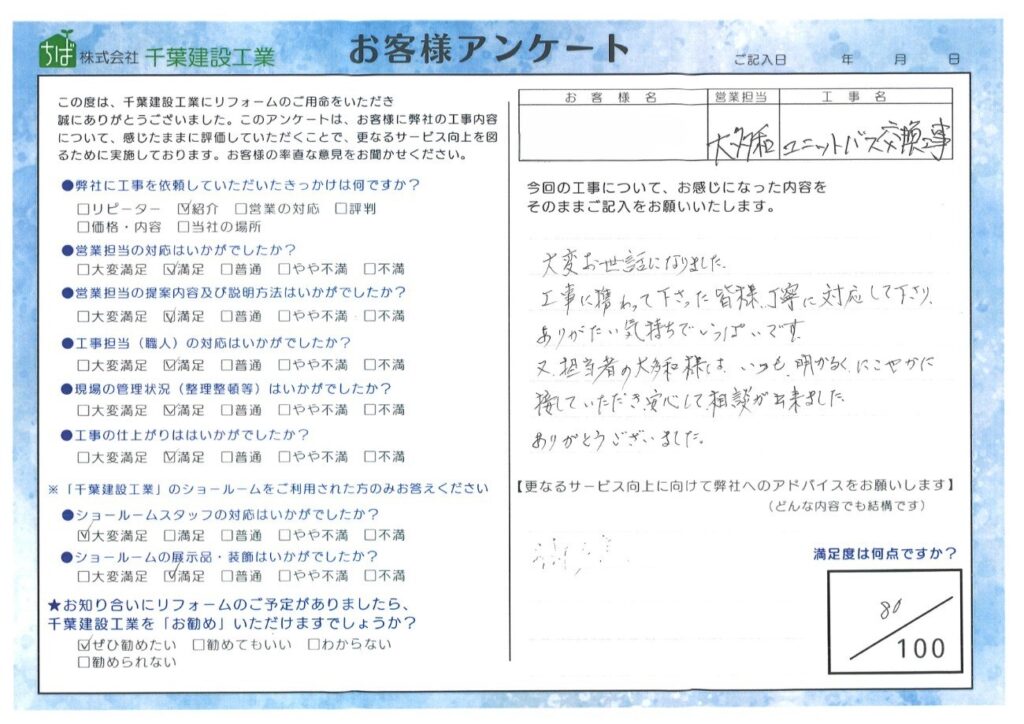 ちば 株式会社 千葉建設工業
お客様アンケート
ご記入日 年 月 日
この度は、千葉建設工業にリフォームのご用命をいただき
誠にありがとうございました。このアンケートは、お客様に弊社の工事内容
について、感じたままに評価していただくことで、更なるサービス向上を図
るために実施しております。お客様の率直な意見をお聞かせください。
●弊社に工事を依頼していただいたきっかけは何ですか？
□リピーター ☑紹介 □営業の対応 □評判
□価格・内容 □当社の場所
●営業担当の対応はいかがでしたか？
□大変満足 ☑満足 □普通 □やや不満 □不満
●営業担当の提案内容及び説明方法はいかがでしたか？
□大変満足 ☑満足 □普通 □やや不満 □不満
●工事担当（職人）の対応はいかがでしたか？
□大変満足 ☑満足 □普通 □やや不満 □不満
●現場の管理状況（整理整頓等）はいかがでしたか？
□大変満足 ☑満足 □普通 □やや不満 □不満
●工事の仕上がりははいかがでしたか？
□大変満足 ☑満足 □普通 □やや不満 □不満
※「千葉建設工業」のショールームをご利用された方のみお答えください
●ショールームスタッフの対応はいかがでしたか？
☑大変満足 □満足 □普通 □やや不満 □不満
●ショールームの展示品・装飾はいかがでしたか？
□大変満足 ☑満足 □普通 □やや不満 □不満
★お知り合いにリフォームのご予定がありましたら、
千葉建設工業を「お勧め」いただけますでしょうか？
☑ぜひ勧めたい □勧めてもいい □わからない
□勧められない
お客様名 営業担当 工事名
大多和 ユニットバス交換工事
今回の工事について、お感じになった内容を
そのままご記入をお願いいたします。
大変お世話になりました。
工事に携わって下さった皆様、丁寧に対応して下さり、
ありがたい気持ちでいっぱいです。
又、担当者の大多和様は、いつも、明かるく、にこやかに
接していただき、安心して、相談が出来ました。
ありがとうございました。
【更なるサービス向上に向けて弊社へのアドバイスをお願いします】
（どんな内容でも結構です）
満足度は何点ですか？
80
100